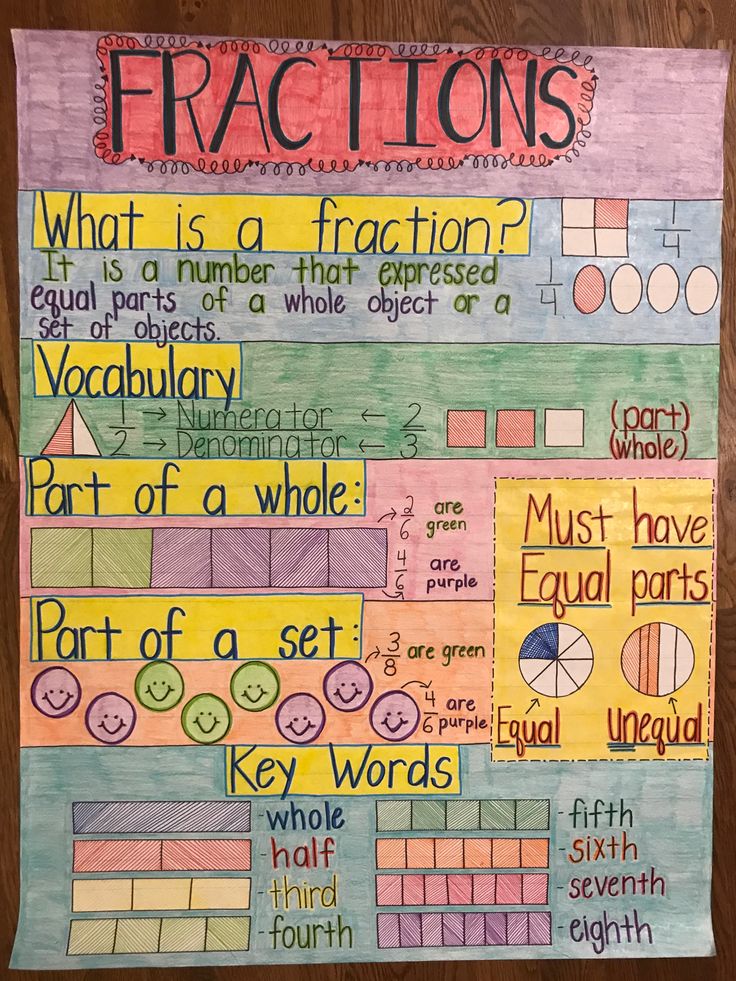 FRACTIONS
What is a fraction?
1/4
It is a number that expressed
equal parts of a whole object or a
set of objects.
1/4
Vocabulary
1/2 → Numerator ← 2/3 (part)
→ Denominator ← (whole)
Part of a whole:
2/6 are
green
4/6 are
purple
Must have
Equal parts
Equal
Unequal
Part of a set:
3/8 are green
4/6 are
purple
Key Words
-whole
-half
-third
-fourth
-fifth
-sixth
-seventh
-eighth